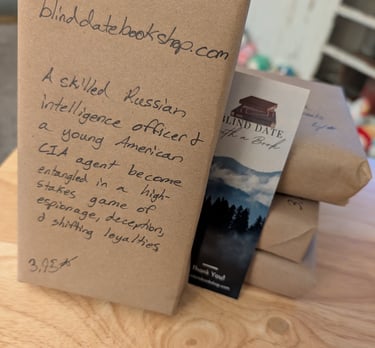 blinddatebookshop.com
A skilled Russian
intelligence officer &
a young American
CIA agent become
entangled in a high-
stakes game of
espionage, deception,
& shifting loyalties
3.95☆
BLIND DATE
with a Book
Thank You!